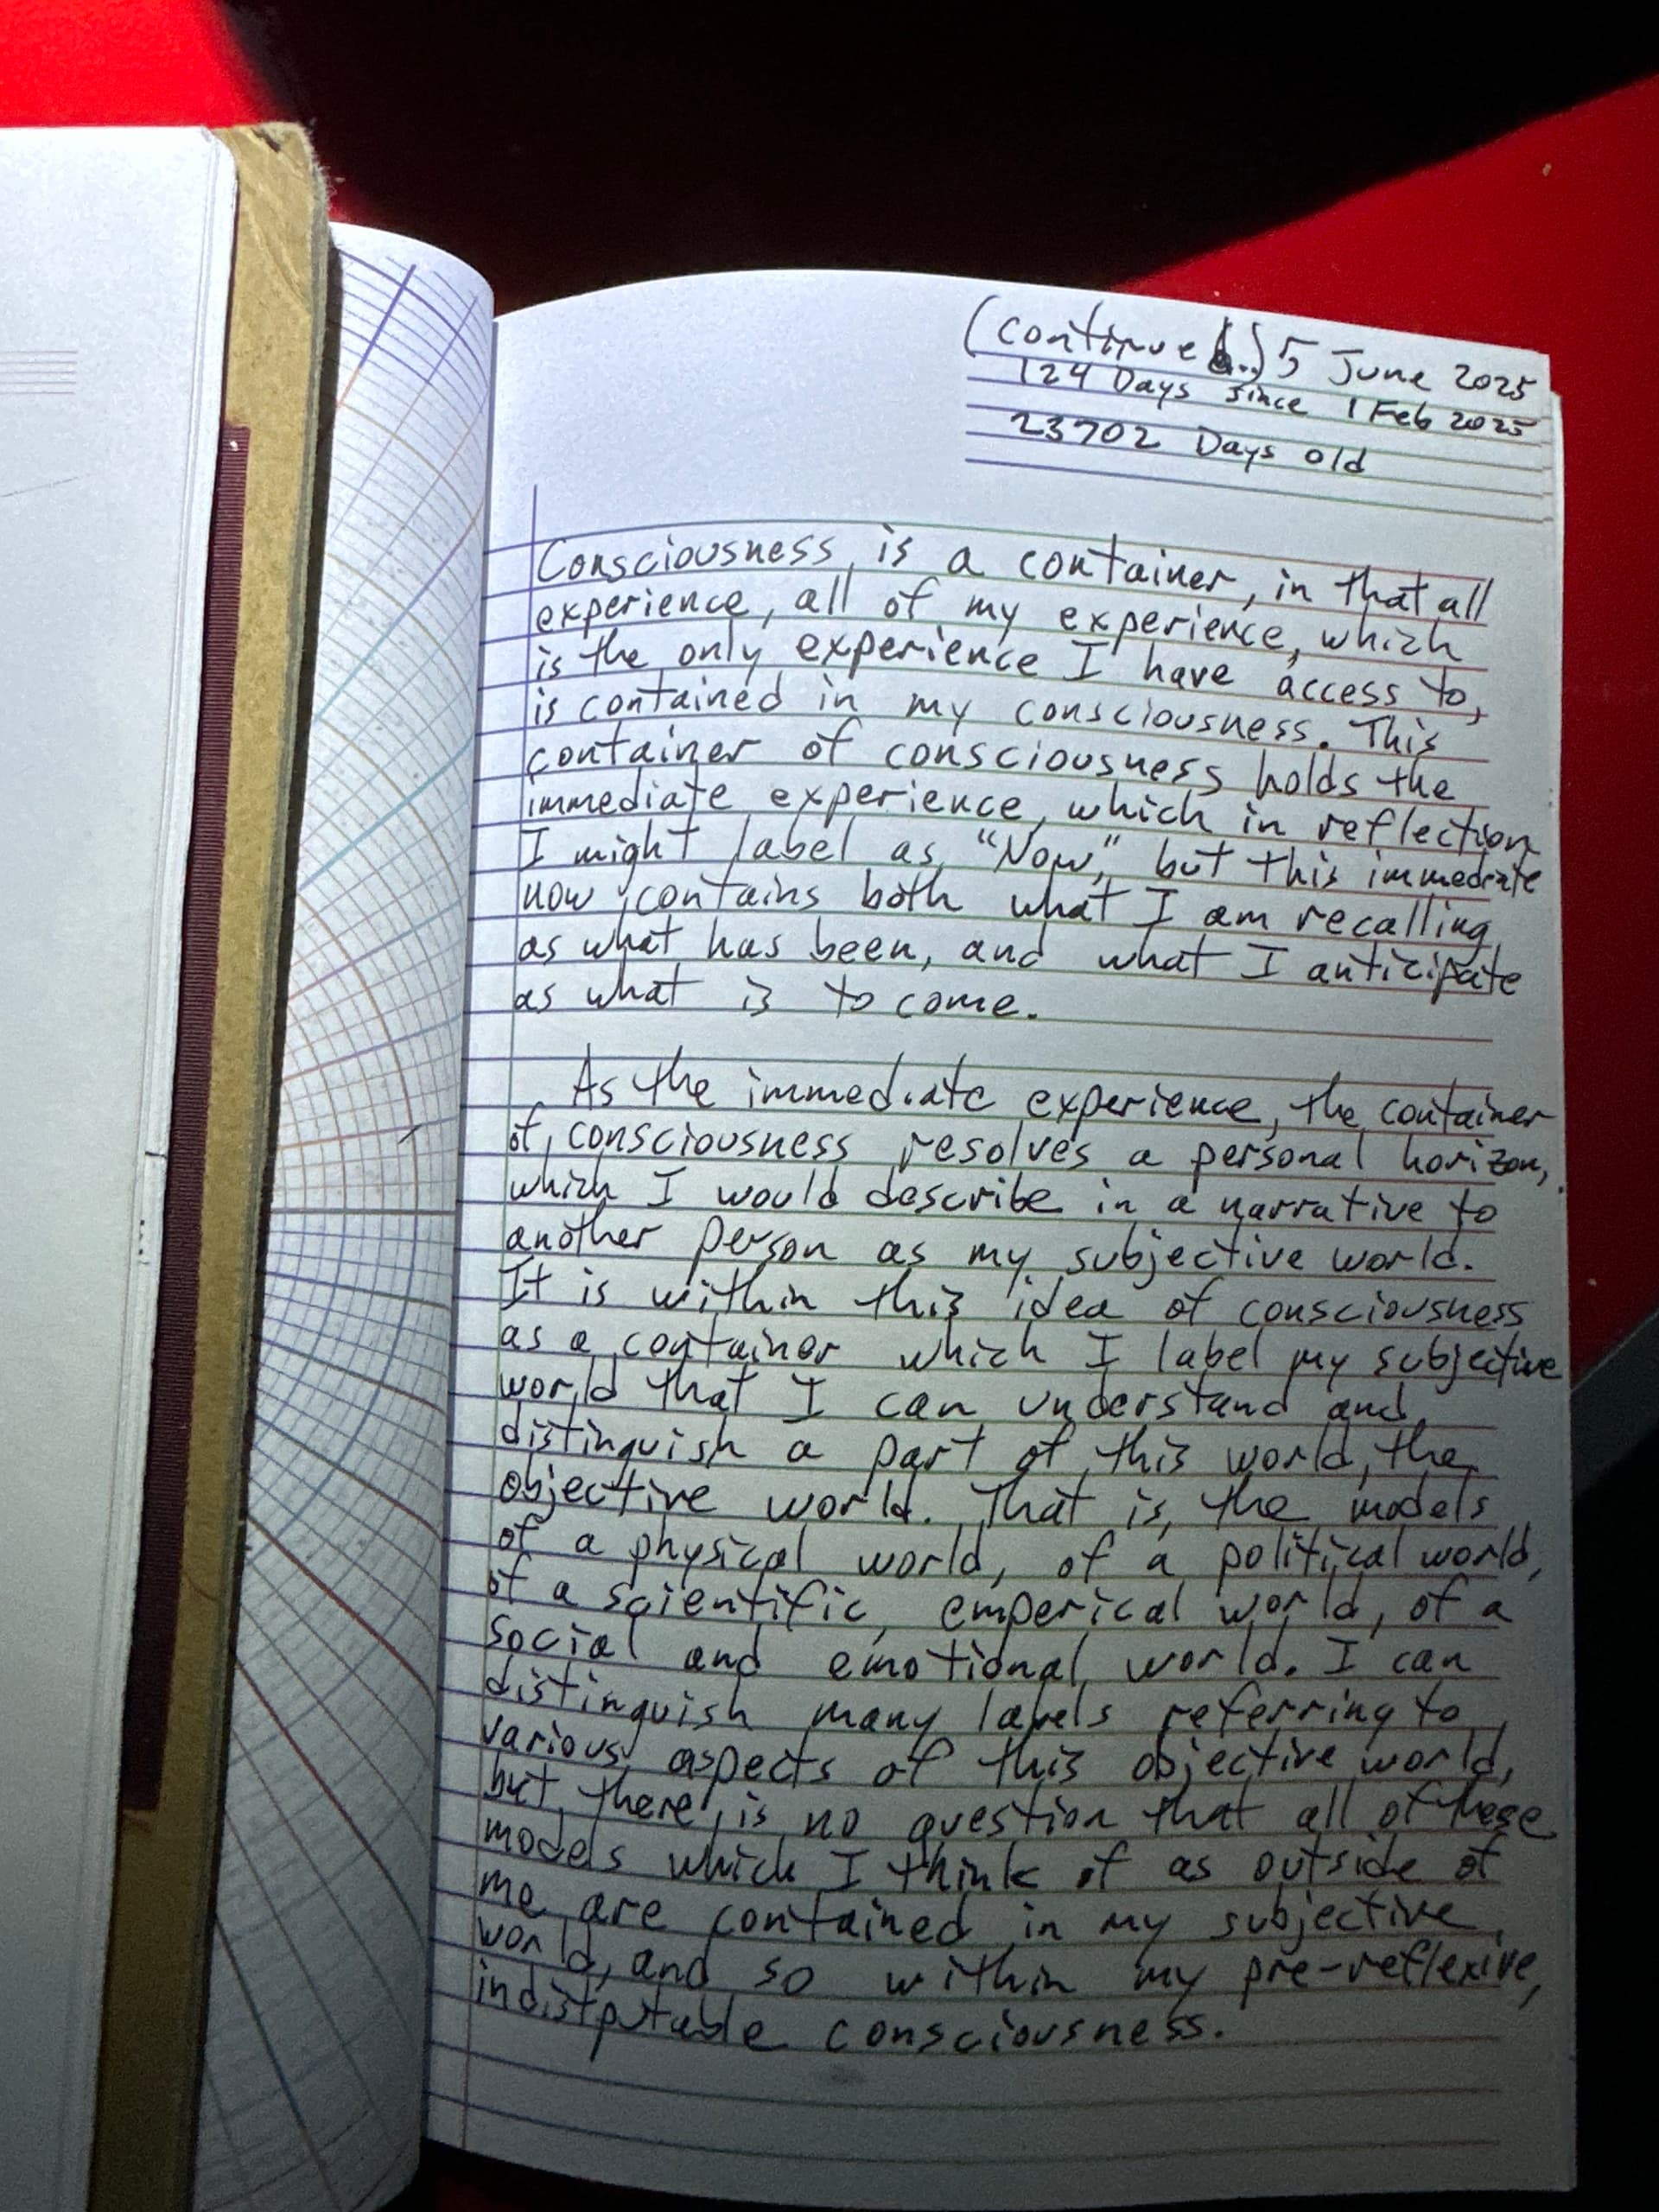 (continued..) 5 June 2025
124 Days since 1 Feb 2025
23702 Days old
Consciousness is a container, in that all
experience, all of my experience, which
is the only experience I have access to,
is contained in my consciousness. This
container of consciousness holds the
immediate experience, which in reflection
I might label as "Now," but this immediate
now contains both what I am recalling
as what has been, and what I anticipate
as what is to come.
As the immediate experience, the container
of consciousness resolves a personal horizon,
which I would describe in a narrative to
another person as my subjective world.
It is within this idea of consciousness
as a container which I label my subjective
world that I can understand and
distinguish a part of this world, the
objective world. That is, the models
of a physical world, of a political world,
of a scientific, emperical world, of a
social and emotional world. I can
distinguish many labels referring to
various aspects of this objective world,
but there is no question that all of these
models which I think of as outside of
me are contained in my subjective
world, and so within my pre-reflexive,
indistputable consciousness.